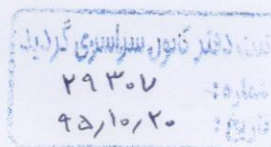 ثبت دفتر کانون سراسری گردید
شماره: ۲۹۳۰۷
تاریخ: ۹۵/۱۰/۲۰